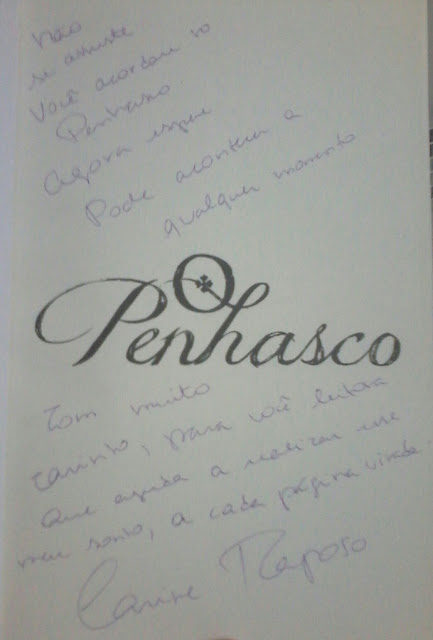 Não
se assuste
Você acordou no
Penhasco.
Agora espere
Pode acontecer a
qualquer momento
O
Penhasco
Com muito
carinho, para você leitora
que ajuda a realizar esse
meu sonho, a cada página virada.
Carine Raposo